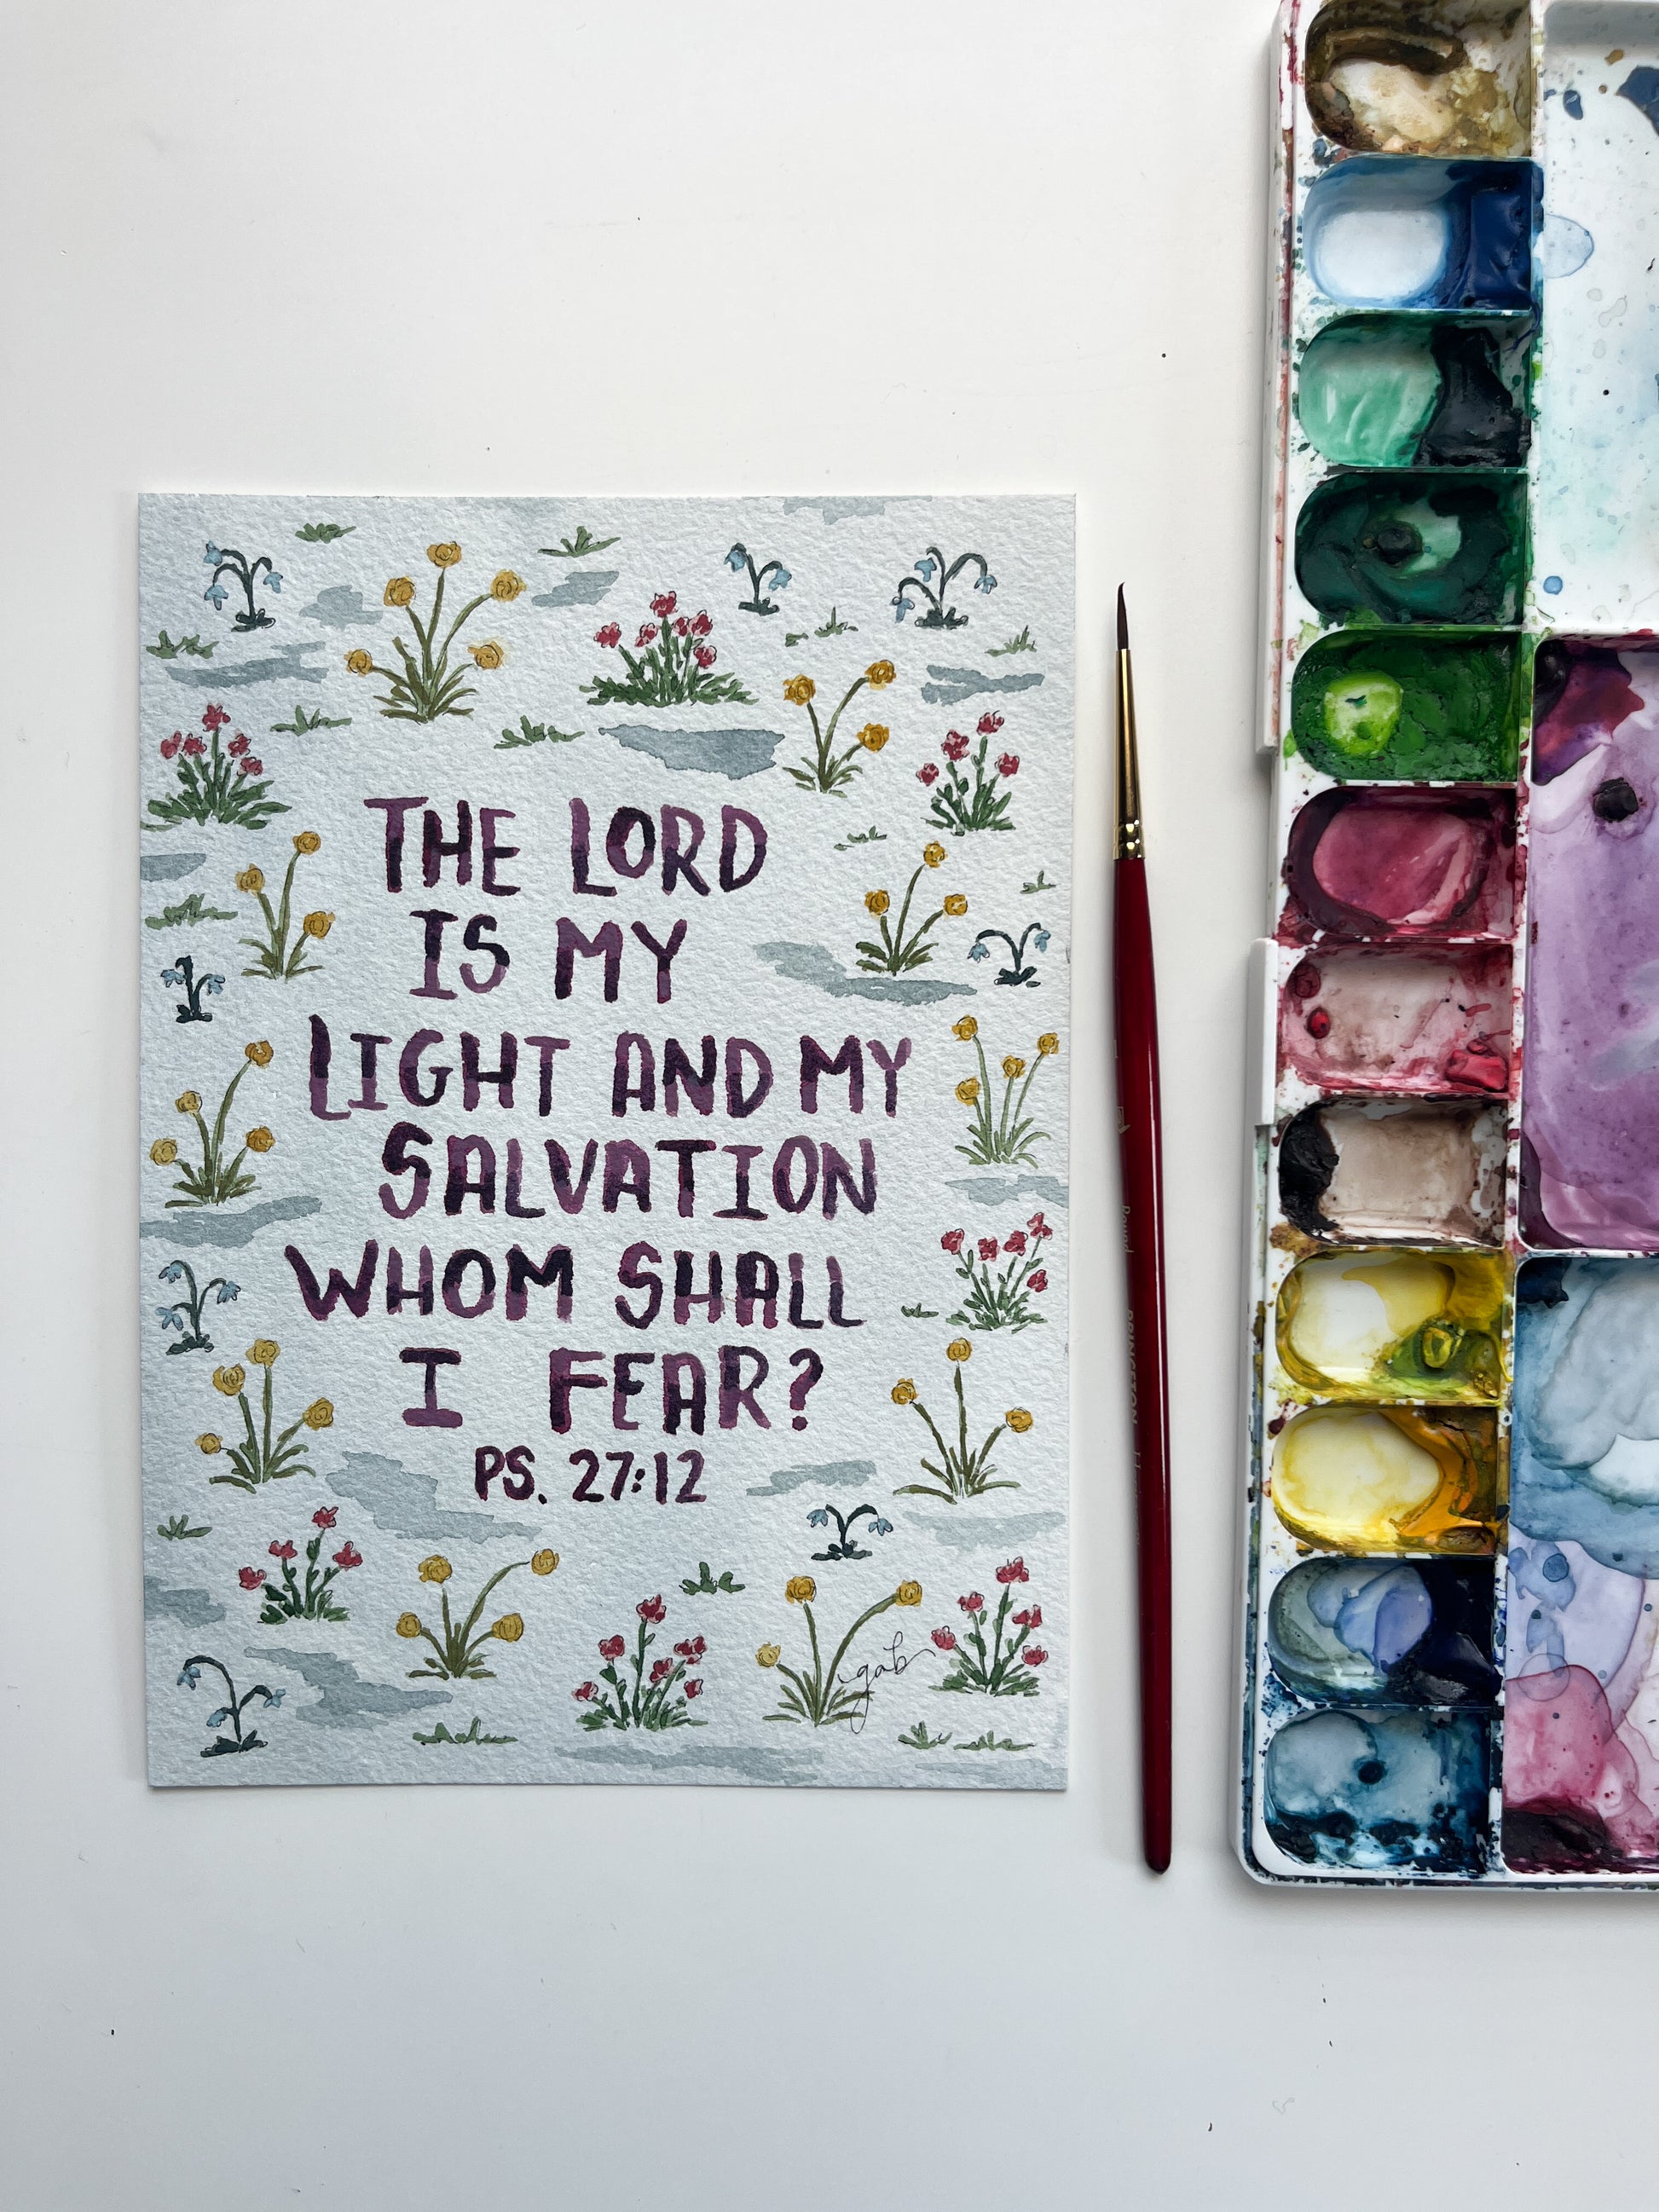 THE LORD
IS MY
LIGHT AND MY
SALVATION
WHOM SHALL
I FEAR?
PS. 27:12
gab
Round PRINCETON